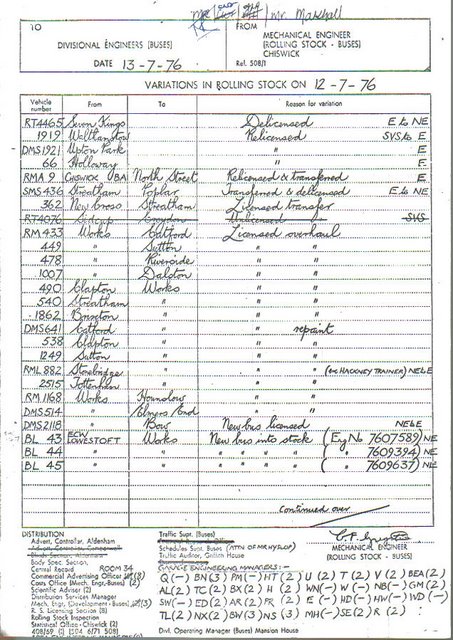 Mr Marshall
TO
FROM
DIVISIONAL ENGINEERS (BUSES)
MECHANICAL ENGINEER
(ROLLING STOCK - BUSES)
CHISWICK
DATE 13-7-76
Ref. 508/1
VARIATIONS IN ROLLING STOCK ON 12-7-76
Vehicle number From To Reason for variation
RT4465 Seven Kings Delicensed E to NE
1919 Walthamstow Relicensed SVS to E
DMS1921 Upton Park " E
66 Holloway " E
RMA 9 CHISWICK BA North Street Relicensed & transferred E
SMS436 Streatham Poplar Transferred & delicensed E to NE
362 New Cross Streatham Licensed transfer
RT4076 Sidcup Croydon Unlicensed SVS
RM433 Works Catford Licensed overhaul
449 " Sutton " "
478 " Riverside " "
1007 " Dalston " "
490 Clapton Works " "
540 Streatham " " "
1862 Brixton " " "
DMS641 Catford " " repaint
538 Clapton " " "
1249 Sutton " " "
RML882 Stonebridge " " " (ex HACKNEY TRAINER) NELE
2515 Tottenham " " "
RM1168 Works Hounslow " "
DMS514 " Elmers End " "
DMS2118 " Bow New bus licensed NELE
BL 43 ECW LOWESTOFT Works New bus into stock (Eng No 7607589) NE
BL 44 " " " " " " ( " 7609394) NE
BL 45 " " " " " " ( " 7609637) NE
Continued over
DISTRIBUTION
Advert. Controller, Aldenham
Body Spec. Section,
Central Record ROOM 34
Commercial Advertising Officer (3)
Costs Office (Mech. Engr.-Buses) (2)
Scientific Adviser (2)
Distribution Services Manager
Mech. Engr. (Development - Buses) (3)
R. S. Licensing Section (8)
Rolling Stock Inspection
Statistical Office - Chiswick (2)
408/69 (L) 1504 6/71 50M
Traffic Supt. (Buses)
Schedules Supt. Buses (ATTN OF MR HYSLOP)
Traffic Auditor, Griffith House
GARAGE ENGINEERING MANAGERS:-
Q(-) BN(3) PM(-) HT(2) U(2) T(2) V(2) BEA(2)
AL(2) TC(2) BX(2) H(2) WN(-) W(-) NB(-) GM(2)
SW(-) ED(2) AR(2) FR(2) E(-) HD(-) HW(-) WD(-)
TL(2) NX(2) BW(3) NS(3) MH(-) SE(2) R(2)
MECHANICAL ENGINEER
(ROLLING STOCK - BUSES)
Divl. Operating Manager (Buses) Mansion House